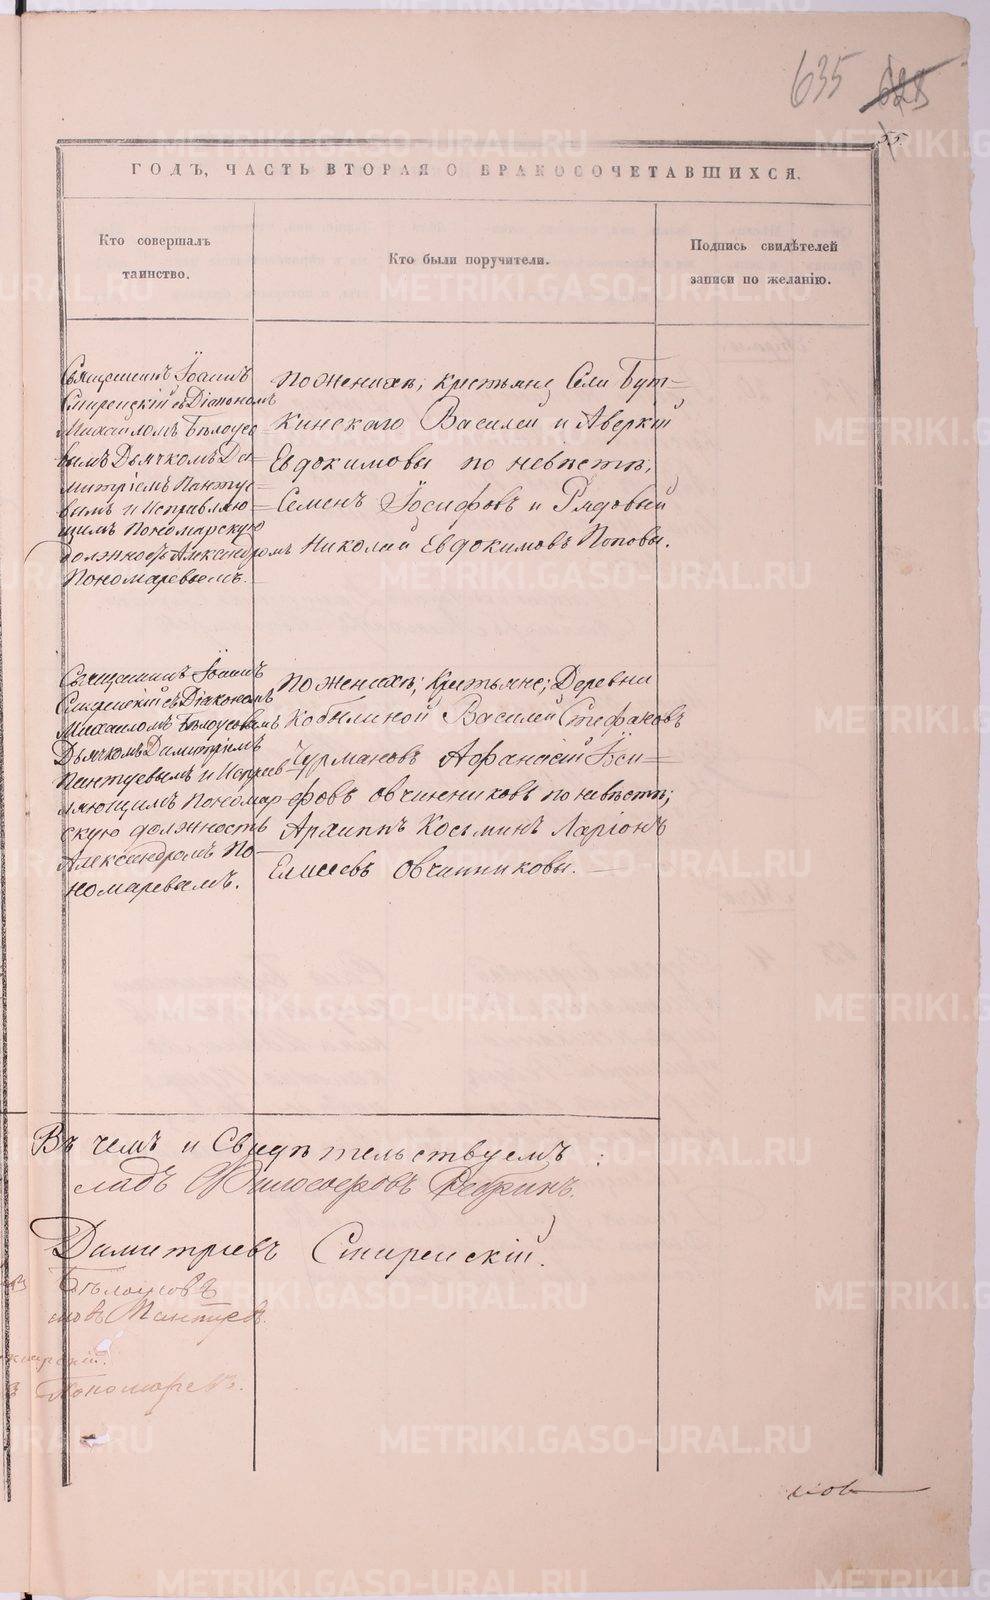 635 628
55.
ГОДЪ, ЧАСТЬ ВТОРАЯ О БРАКОСОЧЕТАВШИХСЯ.
Кто совершалъ
таинство.
Кто были поручители.
Подпись свидѣтелей
записи по желанію.
Священникъ Іоаннъ
Смиренскій съ Діакономъ
Михаиломъ Бѣлоусо=
вымъ Дьячкомъ Ди=
митріемъ Пантуе=
вымъ и Исправляю=
щимъ Пономарскую
должность Александромъ
Пономаревымъ.
По женихѣ; крестьяне Села Бут=
кинскаго Василей и Аверкій
Евдокимовы по невѣстѣ;
Семенъ Іосифовъ и Рядовый
Николай Евдокимовъ Поповы.
Священникъ Іоаннъ
Смиренскій съ Діакономъ
Михаиломъ Бѣлоусовымъ
Дьячкомъ Димитріемъ
Пантуевымъ и Исправ=
ляющимъ Пономар
скую должность
Александромъ По=
номаревымъ.
По женихѣ; Крестьяне; Деревни
Кобылиной Василей Стефановъ
Чурмановъ Афанасій Іоси=
фовъ Овчинниковъ по невѣстѣ;
Архипъ Косьминъ Ларіонъ
Елисеевъ Овчинниковы.
Въ чемъ и Свидѣтельствуемъ:
Димитріевъ Смиренскій.
Бѣлоусовъ
Пантуевъ.
Пономаревъ.
METRIKI.GASO-URAL.RU